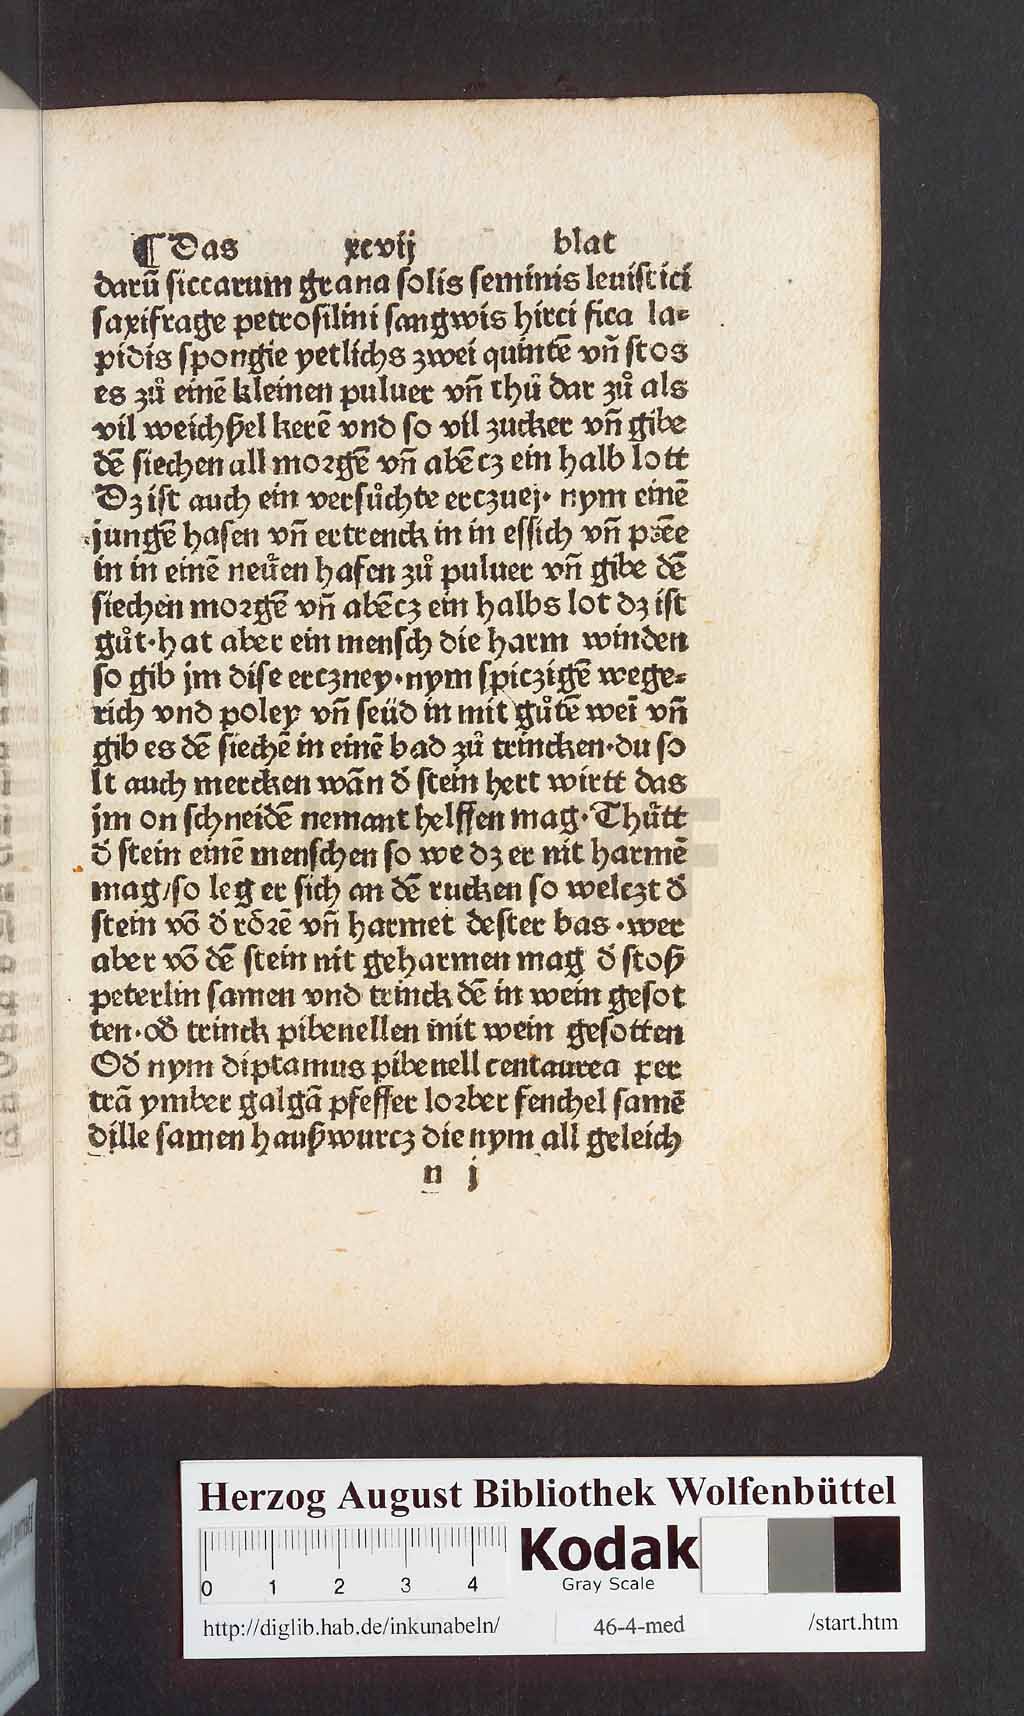 ¶ Das xcvij blat
darū siccarum grana solis seminis leuistici
saxifrage petrosilini sangwis hirci sica la⸗
pidis spongie yetlichs zwei quintē vn̄ stos
es zů einē kleinen puluer vn̄ thů dar zů als
vil weichßel kerē vnd so vil zucker vn̄ gibe
dē siechen all morgē vn̄ abēcz ein halb lott
Dz ist auch ein versůchte erczuej· nym einē
jungē hasen vn̄ ertrenck in in essich vn̄ prēe
in in einē neuͤen hafen zů puluer vn̄ gibe dē
siechen morgē vn̄ abēcz ein halbs lot dz ist
gůt·hat aber ein mensch die harm winden
so gib jm dise erczney·nym spiczigē wege⸗
rich vnd poley vn̄ seüd in mit gůtē wei vn̄
gib es dē siechē in einē bad zů trincken·du so
lt auch mercken wān d̕ stein hert wirtt das
jm on schneidē nemant helffen mag·Thuͤtt
d̕ stein einē menschen so we dz er nit harmē
mag/so leg er sich an dē rucken so welczt d̕
stein vō d̕ rōrē vn̄ harmet dester bas·wer
aber vō dē stein nit geharmen mag d̕ stoß
peterlin samen vnd trinck dē in wein gesot
ten·od̕ trinck pibenellen mit wein gesotten
Od̕ nym diptamus pibenell centaurea per
trā ymber galgā pfeffer lorber fenchel samē
dille samen haußwurcz die nym all geleich
n j
Herzog August Bibliothek Wolfenbüttel
0 1 2 3 4
Kodak
Gray Scale
http://diglib.hab.de/inkunabeln/ 46-4-med /start.htm